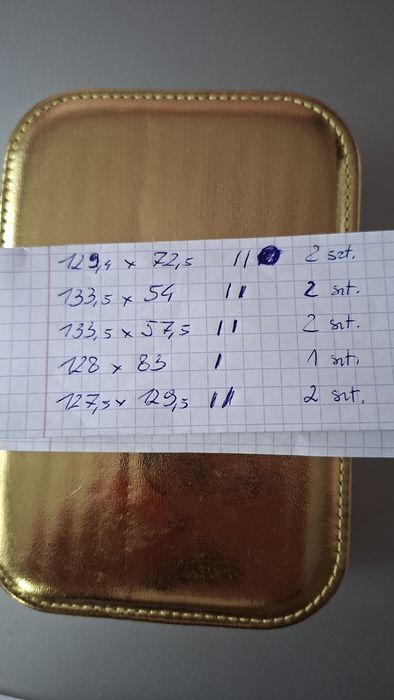 129,4 x 72,5 || 2 szt.
133,5 x 54 || 2 szt.
133,5 x 57,5 || 2 szt.
128 x 83 | 1 szt.
127,5 x 129,5 || 2 szt.